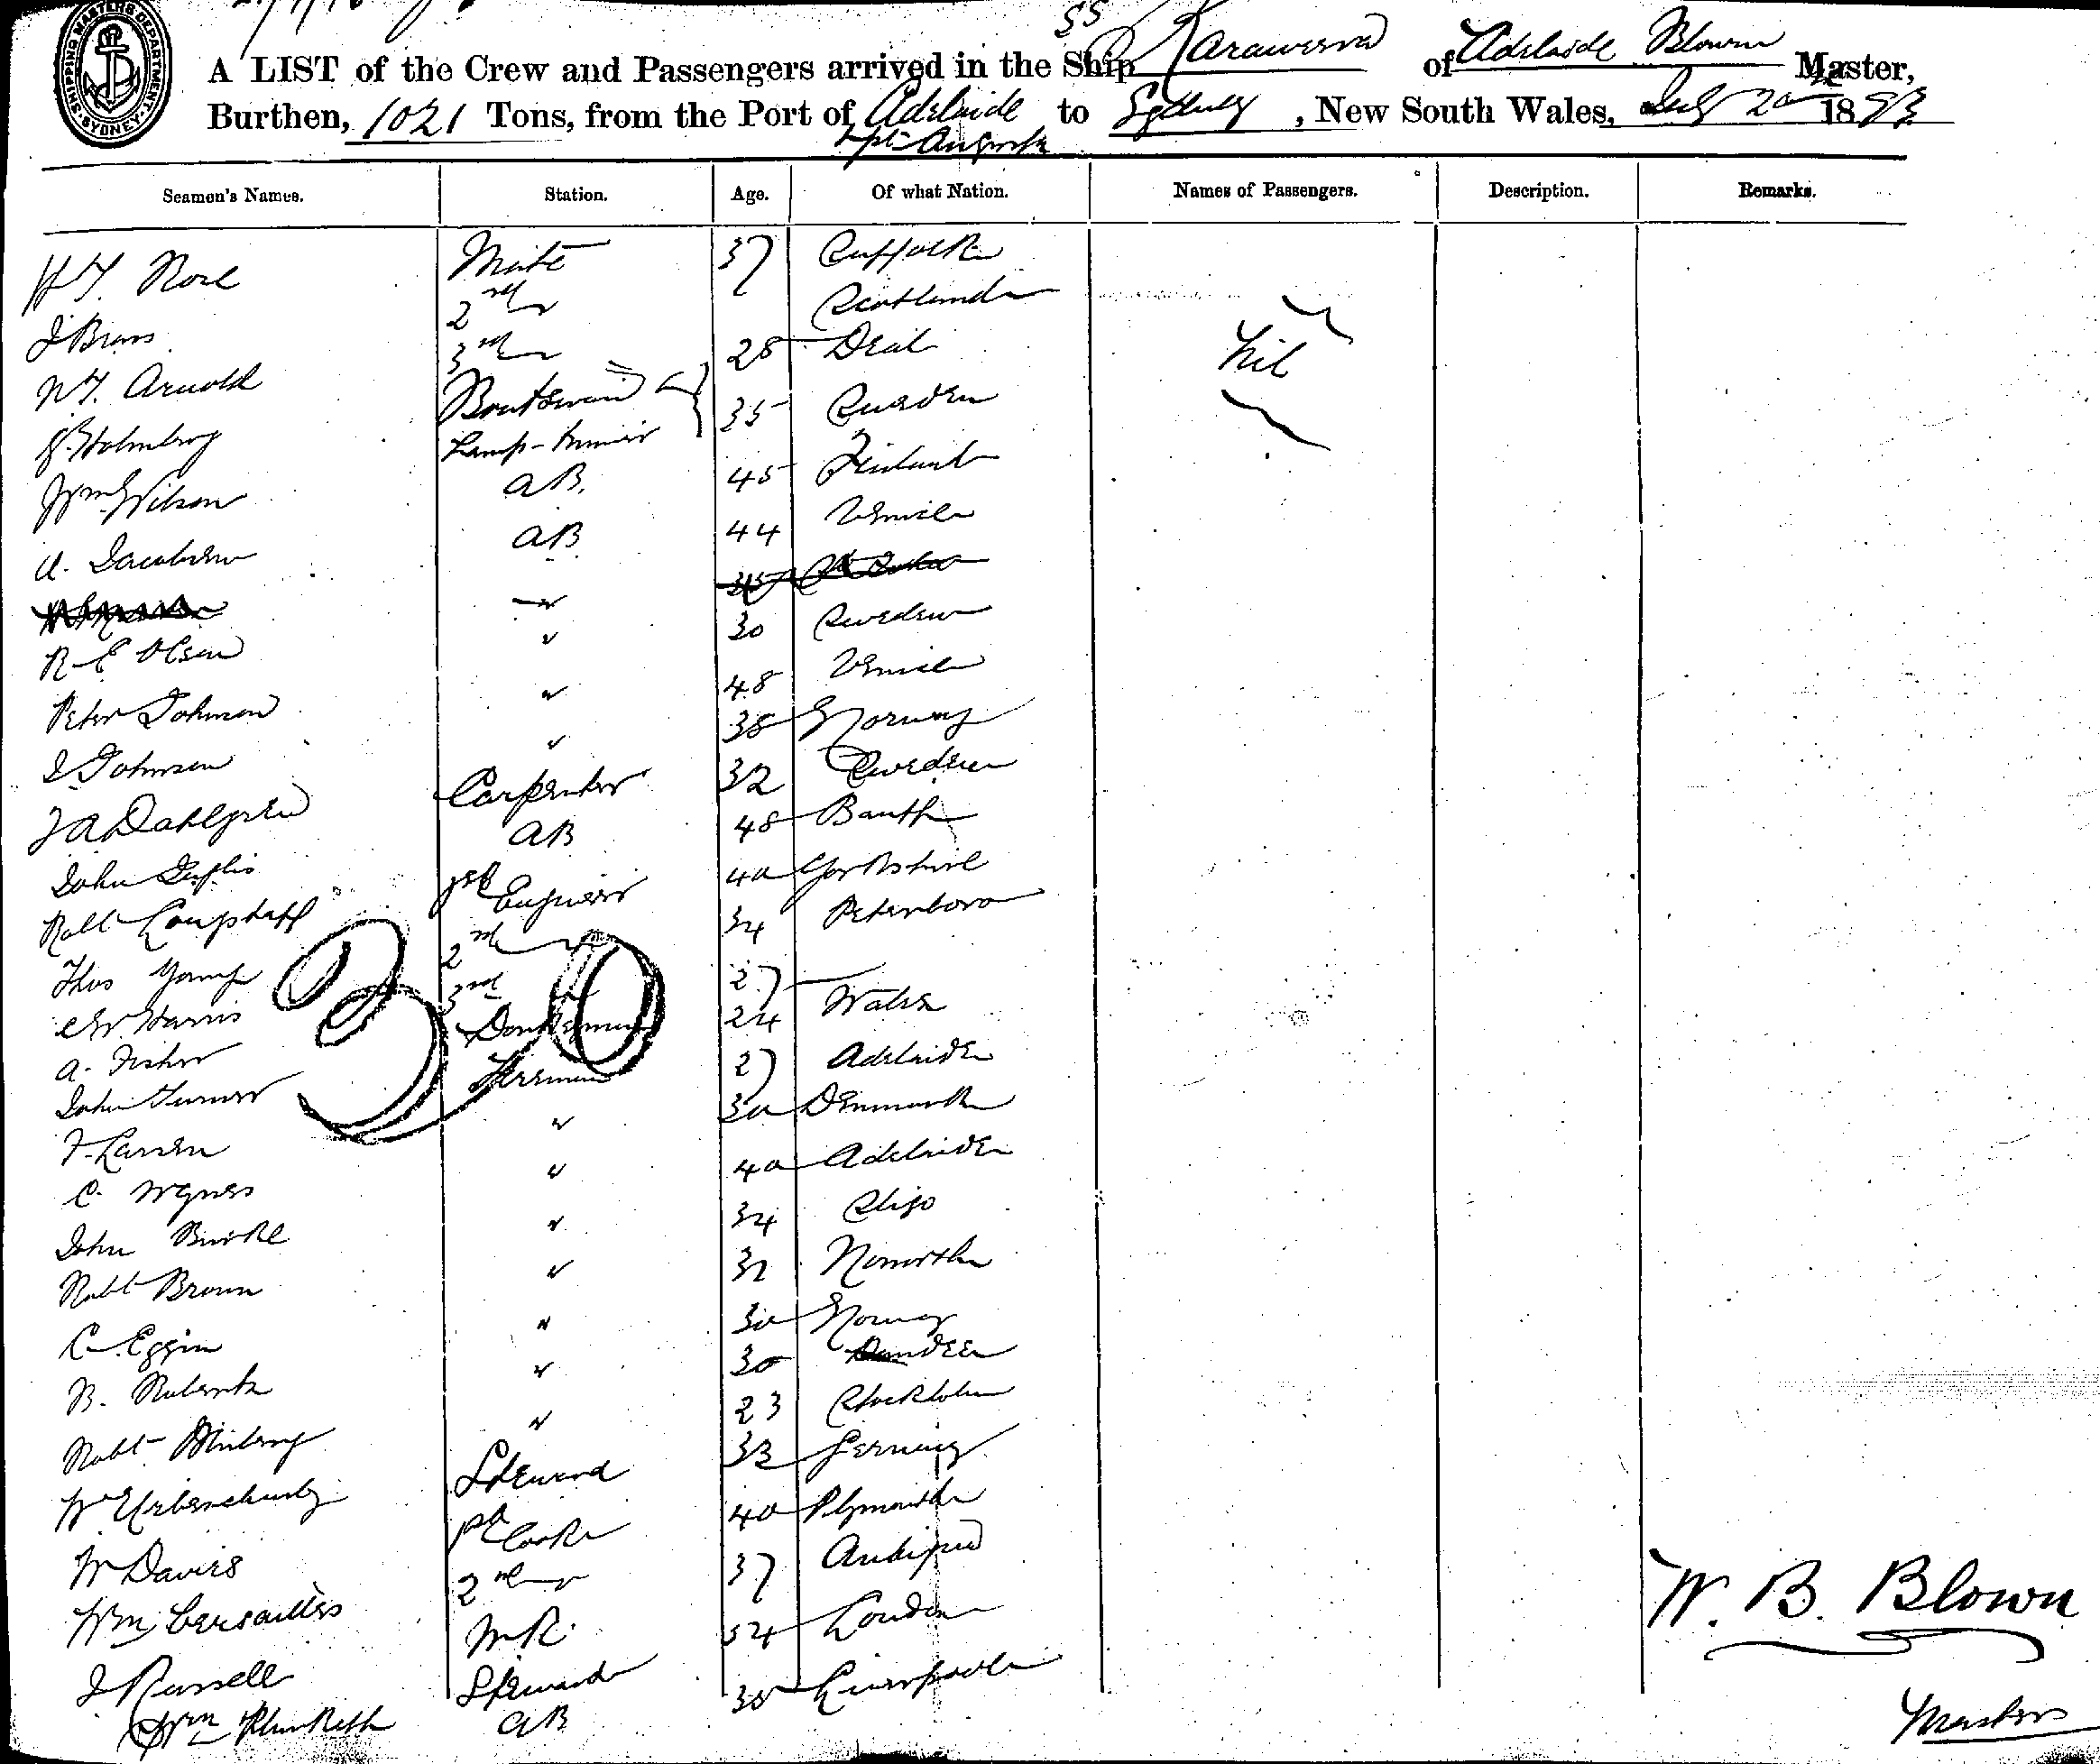 SHIPPING MASTERS DEPARTMENT
SYDNEY
SS
A LIST of the Crew and Passengers arrived in the Ship Karaweera of Adelaide Blown Master,
Burthen, 1021 Tons, from the Port of Adelaide to Sydney, New South Wales, July 20 1893
& pt Augusta
Seamen's Names. Station. Age. Of what Nation. Names of Passengers. Description. Remarks.
Mate 37 Suffolk
2nd Scotland
3rd 28 Deal
Nil
W.T. Arnold Boatswain 35 Sweden
J. Holmberg Lamp-trimmer 45 Finland
Wm Wilson AB. 44 Venice
A. Jacobsen AB
" 30 Sweden
R. E Olsen " 48 Venice
Peter Johnson " 38 Norway
J Johnson " 32 Sweden
J A Dahlgren Carpenter 48 Banff
John AB 40 Yorkshire
Robt 1st Engineer 34 Peterboro
Thos Young 2nd 27
C W Harris 3rd 24 Wales
A. Fisher Donkeyman 27 Adelaide
John Turner Fireman 30 Denmark
F. Larsen " 40 Adelaide
C. " 34 Sligo
John Burke " 32
Robt Brown " 30 Norway
C. Eggin " 30 Dundee
B. Roberts " 23 Stockholm
Robt " 33 Germany
W Steward 40 Plymouth
W Davies 1st Cook 37 Antigua
Wm Versailles 2nd 54 London
J Russell M.R. 38 Liverpool
Steward
Wm Plunkett AB
30
W. B. Blown
Master